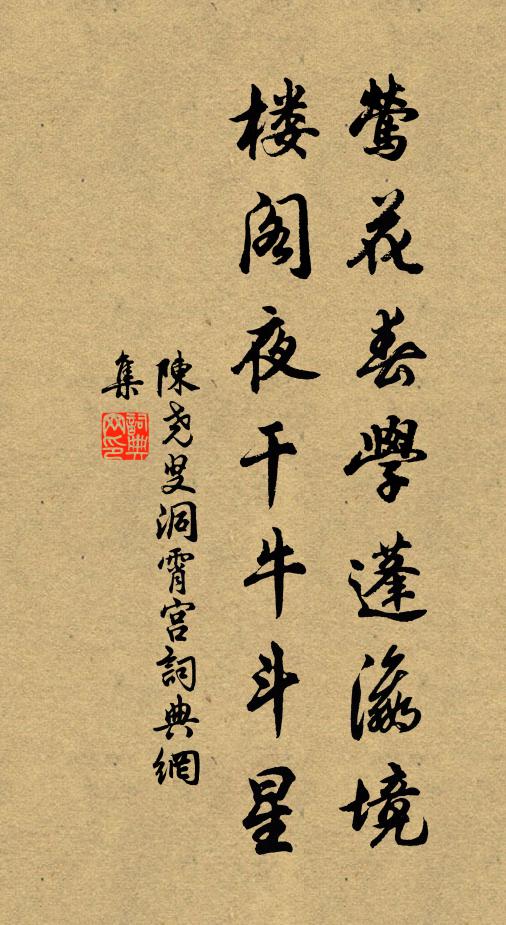 莺花春學蓬瀛境
楼阁夜干牛斗星
陳尧叟洞霄宫詞典網
集
詞典网印